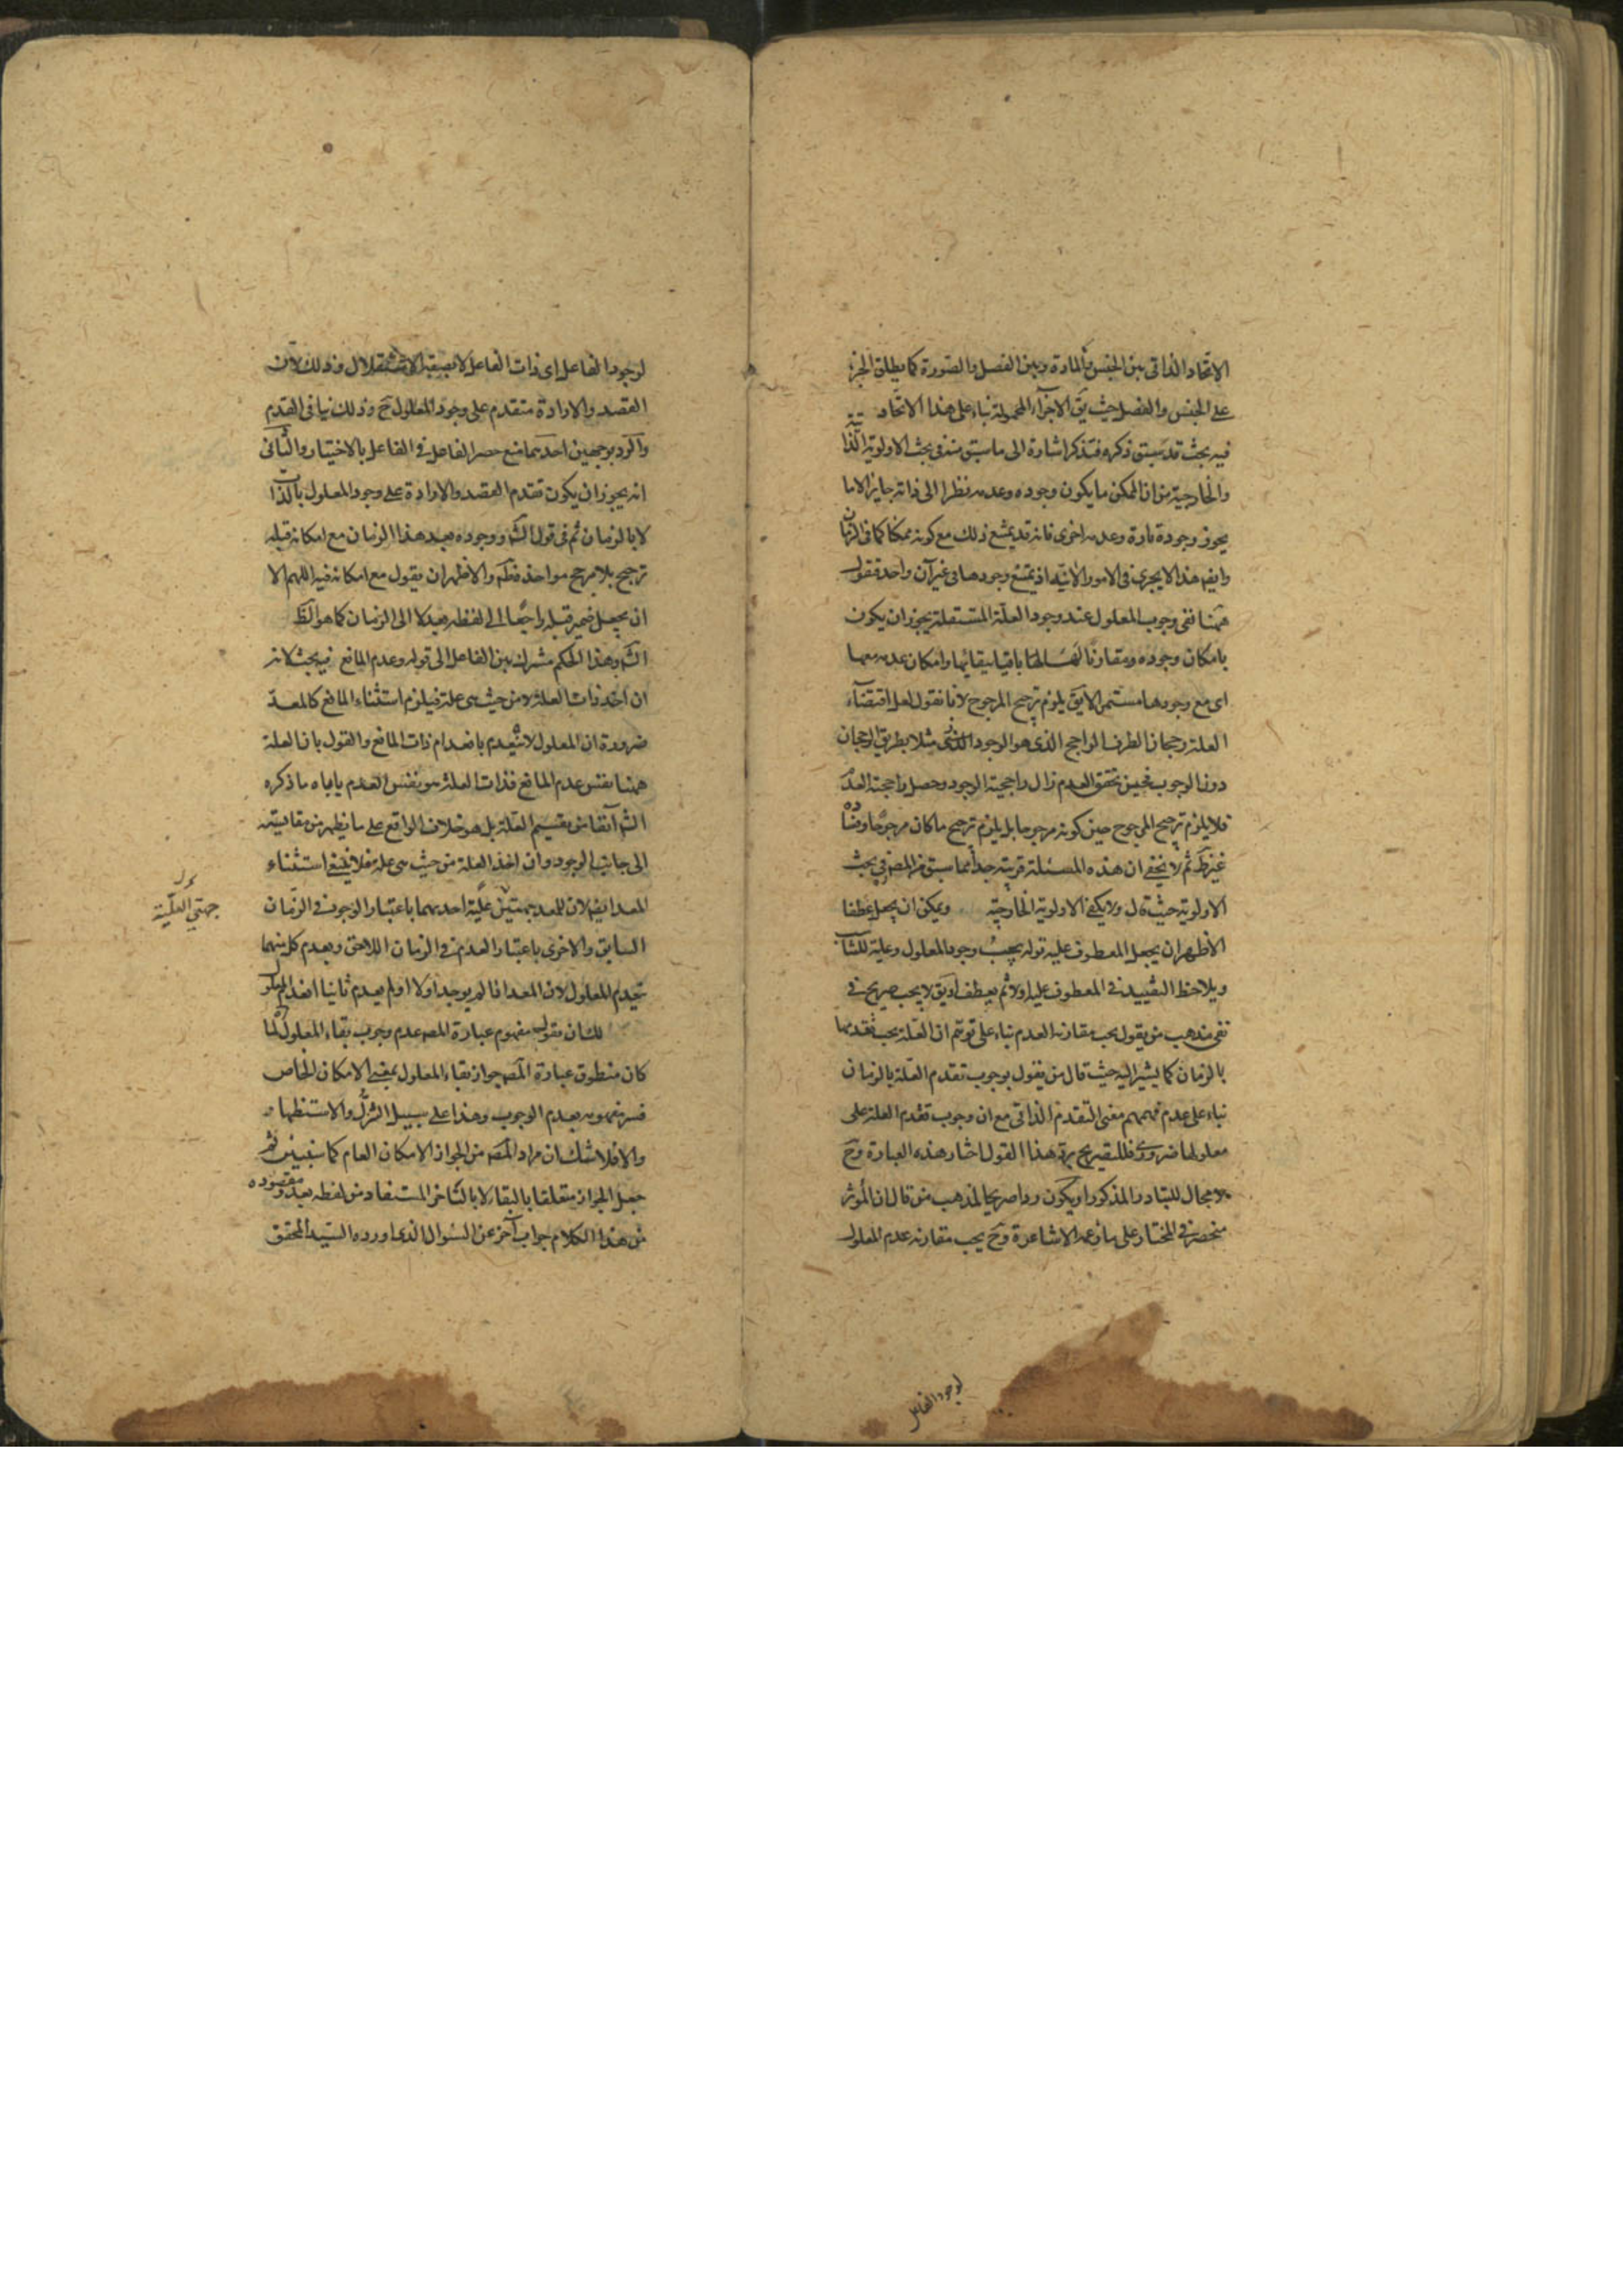 الاتحاد الذاتى بين الجنس والمادة وبين الفصل والصورة كما يطلق الجزء
على الجنس والفصل حيث يق الاجزاء المحمولة بناء على هذا الاتحاد
فيه بحث قد سبق ذكره فتذكر اشارة الى ما سبق منه فى بحث الاولوية الذا
تية
والخارجية من ان الممكن ما يكون وجوده وعدمه نظرا الى ذاته جايز الا ما
يجوز وجوده تارة وعدمه اخرى فانه قد يمتنع ذلك مع كونه ممكنا كما فى الزمان
وايضا هذا لا يجرى فى الامور الآنية اذ يمتنع وجودها فى غير آن واحد فقوله
ههنا نفى وجوب المعلول عند وجود العلة المستقلة يجوز ان يكون
بامكان وجوده ومقارنا لها باقيا ببقائها وامكان عدمه معها
اى مع وجودها مستمرا لا يق يلزم ترجيح المرجوح لانا نقول لعل اقتضاء
العلة رجحان الطرف الراجح الذى هو الوجود مثلا بطريق الرجحان
دون الوجوب فحين تحقق العدم زال راجحية الوجود وحصل راجحية العدم
فلا يلزم ترجيح المرجوح حين كونه مرجوحا بل يلزم ترجيح ما كان مرجوحا وفساده
غير ظ ثم لا يخفى ان هذه المسئلة قريبة جدا مما سبق من المص فى بحث
الاولوية حيث قال ولا يكفى الاولوية الخارجية ويمكن ان يجعل عطفا
الاظهر ان يجعل المعطوف عليه قوله يجب وجود المعلول وعلية للثا
ويلاحظ التقييد فى المعطوف عليه اولا ثم يعطف او يق لا يجب صريح فى
نفى مذهب من يقول يجب مقارنة العدم بناء على توهم ان العلة يجب تقدمها
بالزمان كما يشير اليه حيث قال من يقول بوجوب تقدم العلة بالزمان
بناء على عدم فهمهم معنى التقدم الذاتى مع ان وجوب تقدم العلة على
معلولها ضرورى فللتصريح برد هذا القول اختار هذه العبارة وح
لا مجال للتبادر المذكور او يكون ردا صريحا لمذهب من قال ان المؤثر
منحصر فى المختار على ما زعمه الاشاعرة وح يجب مقارنة عدم المعلول
لوجود الفاعل
لوجود الفاعل اى ذات الفاعل لا بصفة الاستقلال وذلك لان
القصد والارادة متقدم على وجود المعلول ح وذلك ينافى القدم
والرد بوجهين احدهما منع حصر الفاعل فى الفاعل بالاختيار والثانى
انه يجوز ان يكون تقدم القصد والارادة على وجود المعلول بالذات
لا بالزمان ثم فى قول الش ووجوده بعد هذا الزمان مع امكانه قبله
ترجيح بلا مرجح مواخذة والاظهر ان يقول مع امكانه فيه اللهم الا
ان يجعل ضمير قبله راجعا الى لفظة بعد لا الى الزمان كما هو الظ
الش وهذا الحكم مشترك بين الفاعل الى قوله وعدم المانع فيه بحث لانه
ان اخذ ذات العلة لا من حيث هى علة فيلزم استثناء المانع كالمعد
ضرورة ان المعلول لا ينعدم بانعدام ذات المانع والقول بان العلة
ههنا نفس عدم المانع فذات العلة هو نفس العدم ياباه ما ذكره
الش آنفا من تقسيم العلة بل هو خلاف الواقع على ما يظهر من مقايسته
الى جانب الوجود وان اخذ العلة من حيث هى علة فلا ينبغى استثناء
المعد ايضا لان للمعد جهتين علية احديهما باعتبار الوجود فى الزمان
جهتى العلية
السابق والاخرى باعتبار العدم فى الزمان اللاحق وبعدم كل منهما
ينعدم المعلول لان المعد اذا لم يوجد اولا او لم يعدم ثانيا انعدم المعلول
لك ان تقول مفهوم عبارة المص عدم وجوب بقاء المعلول لما
كان منطوق عبارة المص جواز بقاء المعلول بمعنى الامكان الخاص
فسر مفهومه بعدم الوجوب وهذا على سبيل التنزل والاستظهار
والا فلا شك ان مراد المص من الجواز الامكان العام كما سنبين ثم
جعل الجواز متعلقا بالبقاء لا بالتاخر المستفاد من لفظه بعد ومقصوده
من هذا الكلام جواب آخر عن السؤال الذى اورده السيد المحقق